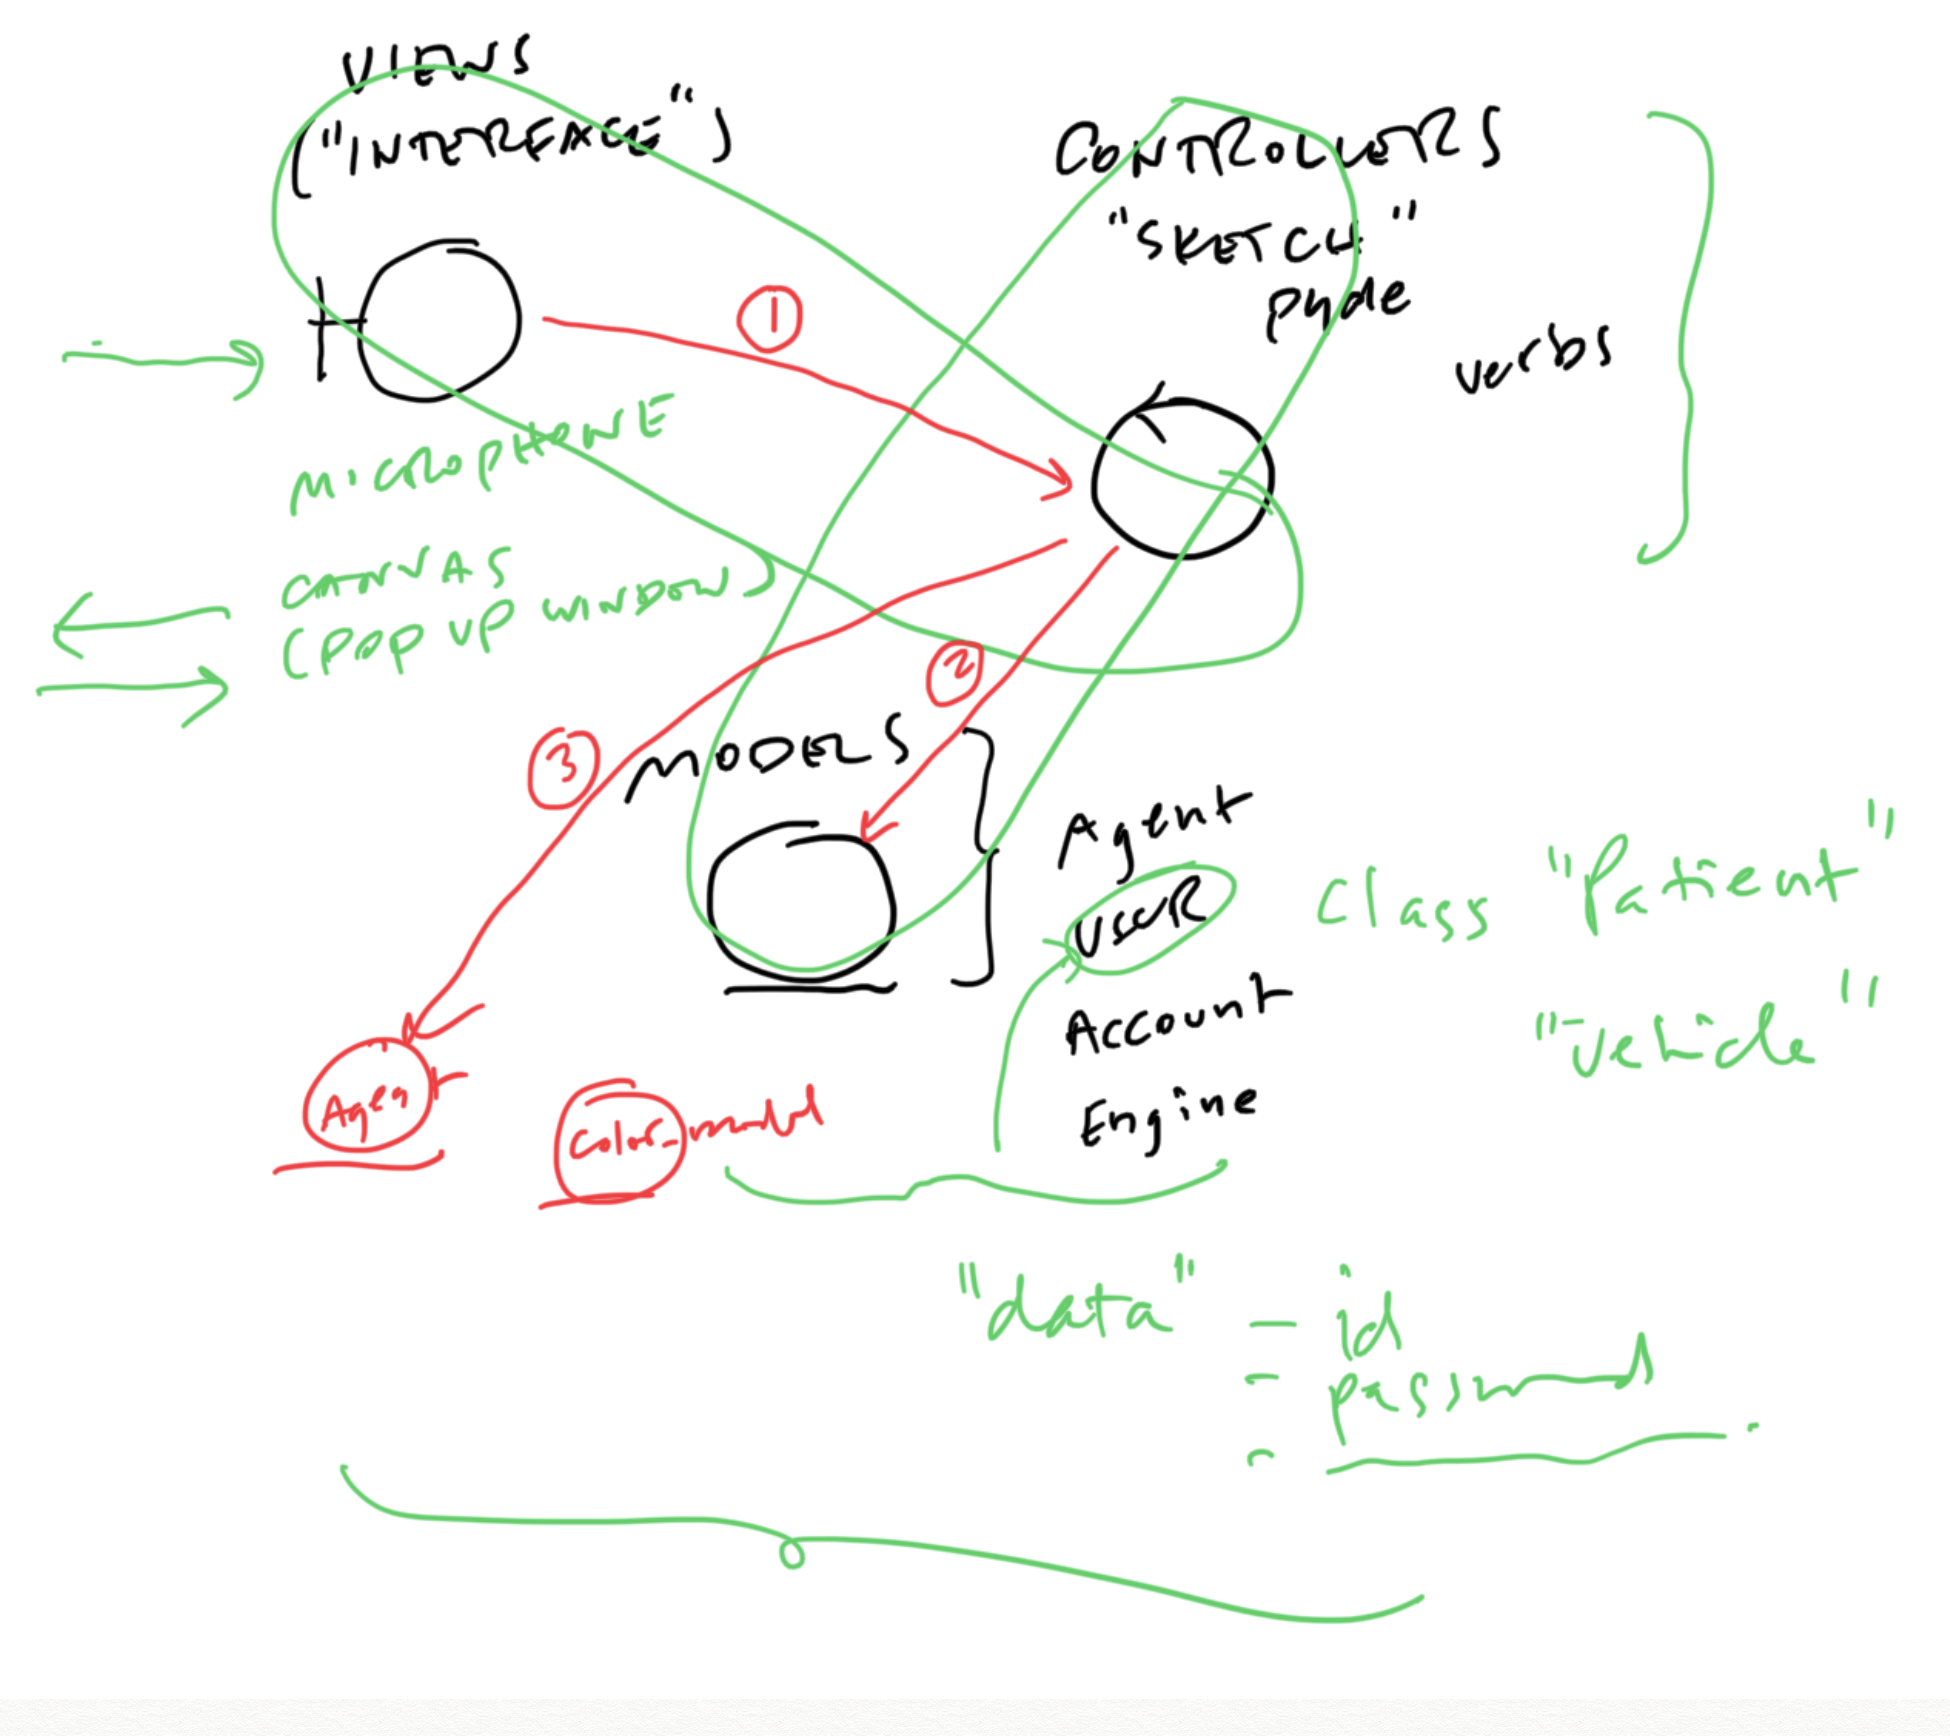 VIEWS
("INTERFACE")
CONTROLLERS
"SKETCH"
pyde
verbs
1
MICROPHONE
CANVAS
(POP UP WINDOW)
2
3
MODELS
Agent
USER
Account
Engine
Class "Patient"
"Vehicle"
Agent
Color_model
"data" - id
- password
-